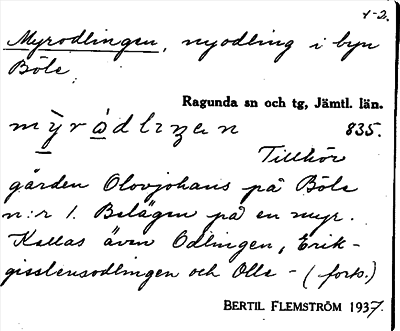 1-2.
Myrodlingen, nyodling i byn
Böle.
Ragunda sn och tg, Jämtl. län.
835.
Tillhör
gården Olovjohans på Böle
n:r 1. Belägen på en myr.
Kallas även Odlingen, Erik-
gisslensodlingen och Olle- (forts.)
BERTIL FLEMSTRÖM 1937.